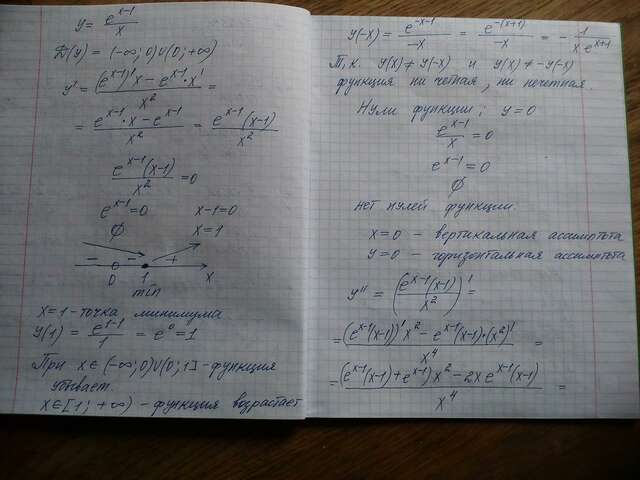 y = e^(x-1)/x
D(y) = (-∞; 0)∪(0; +∞)
y' = ((e^(x-1))'x - e^(x-1)·x')/x² =
= (e^(x-1)·x - e^(x-1))/x² = e^(x-1)(x-1)/x²
e^(x-1)(x-1)/x² = 0
e^(x-1) = 0 x-1=0
∅ x=1
- - +
0 1 x
min
x=1 - точка минимума
y(1) = e^(1-1)/1 = e⁰ = 1
При x∈(-∞; 0)∪(0; 1] - функция
убывает.
x∈[1; +∞) - функция возрастает
y(-x) = e^(-x-1)/-x = e^(-(x+1))/-x = - 1/(x e^(x+1))
Т.к. y(x) ≠ y(-x) и y(x) ≠ -y(-x)
функция ни четная, ни нечетная.
Нули функции; y=0
e^(x-1)/x = 0
e^(x-1) = 0
∅
нет нулей функции.
x=0 - вертикальная ассимптота
y=0 - горизонтальная ассимптота
y'' = (e^(x-1)(x-1)/x²)' =
= ((e^(x-1)(x-1))'x² - e^(x-1)(x-1)·(x²)')/x⁴ =
= ((e^(x-1)(x-1) + e^(x-1))x² - 2x e^(x-1)(x-1))/x⁴ =